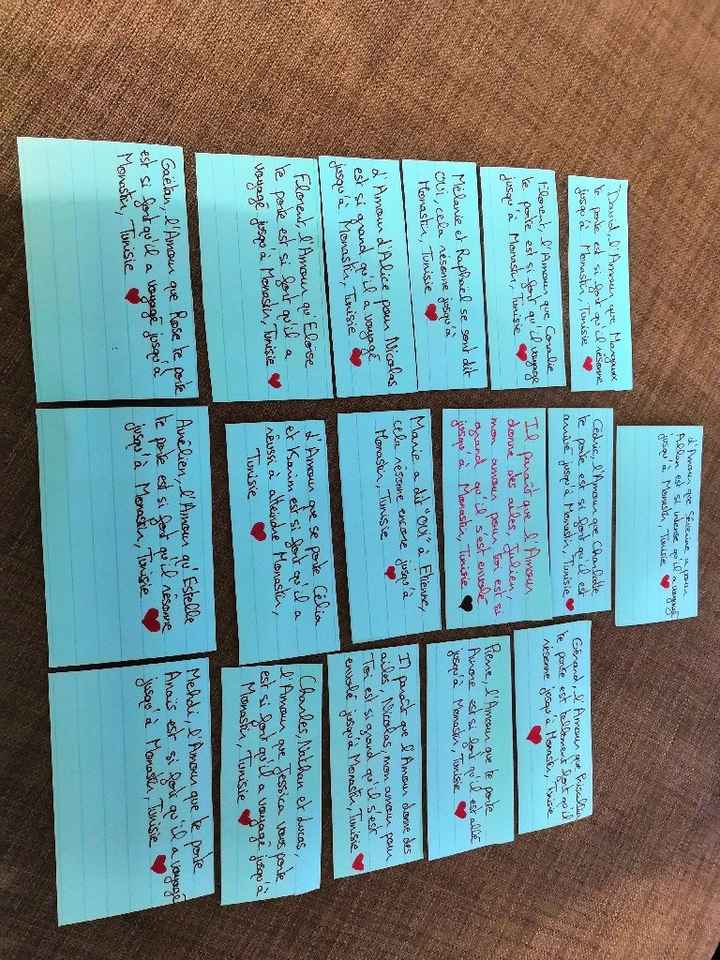 David, l'Amour que Margaux
te porte est si fort qu'il résonne
jusqu'à Monastir, Tunisie
Florent, l'Amour que Coralie
te porte est si fort qu'il voyage
jusqu'à Monastir, Tunisie
Mélanie et Raphaël se sont dit
OUI, cela résonne jusqu'à
Monastir, Tunisie
L'Amour d'Alice pour Nicolas
est si grand qu'il a voyagé
jusqu'à Monastir, Tunisie
Florent, l'Amour qu'Eloïse
te porte est si fort qu'il a
voyagé jusqu'à Monastir, Tunisie
Gaëtan, l'Amour que Rose te porte
est si fort qu'il a voyagé jusqu'à
Monastir, Tunisie
L'Amour que Séverine a pour
Allan est si intense qu'il a voyagé
jusqu'à Monastir, Tunisie
Cédric, l'Amour que Charlotte
te porte est si fort qu'il est
arrivé jusqu'à Monastir, Tunisie
Il paraît que l'Amour
donne des ailes, Julien,
mon amour pour toi est si
grand qu'il s'est envolé
jusqu'à Monastir, Tunisie
Marie a dit "OUI" à Etienne,
cela résonne encore jusqu'à
Monastir, Tunisie
L'Amour que se porte Célia
et Karim est si fort qu'il a
réussi à atteindre Monastir,
Tunisie
Aurélien, l'Amour qu'Estelle
te porte est si fort qu'il résonne
jusqu'à Monastir, Tunisie
Gérard, l'Amour que
te porte est tellement fort qu'il
résonne jusqu'à Monastir, Tunisie
Pierre, l'Amour que te porte
Aurore est si fort qu'il est allé
jusqu'à Monastir, Tunisie
Il paraît que l'Amour donne des
ailes, Nicolas, mon amour pour
Toi est si grand qu'il s'est
envolé jusqu'à Monastir, Tunisie
Charles, Nathan et Lucas,
l'Amour que Jessica vous porte
est si fort qu'il a voyagé jusqu'à
Monastir, Tunisie
Mehdi, l'Amour que te porte
Anaïs est si fort qu'il a voyagé
jusqu'à Monastir, Tunisie